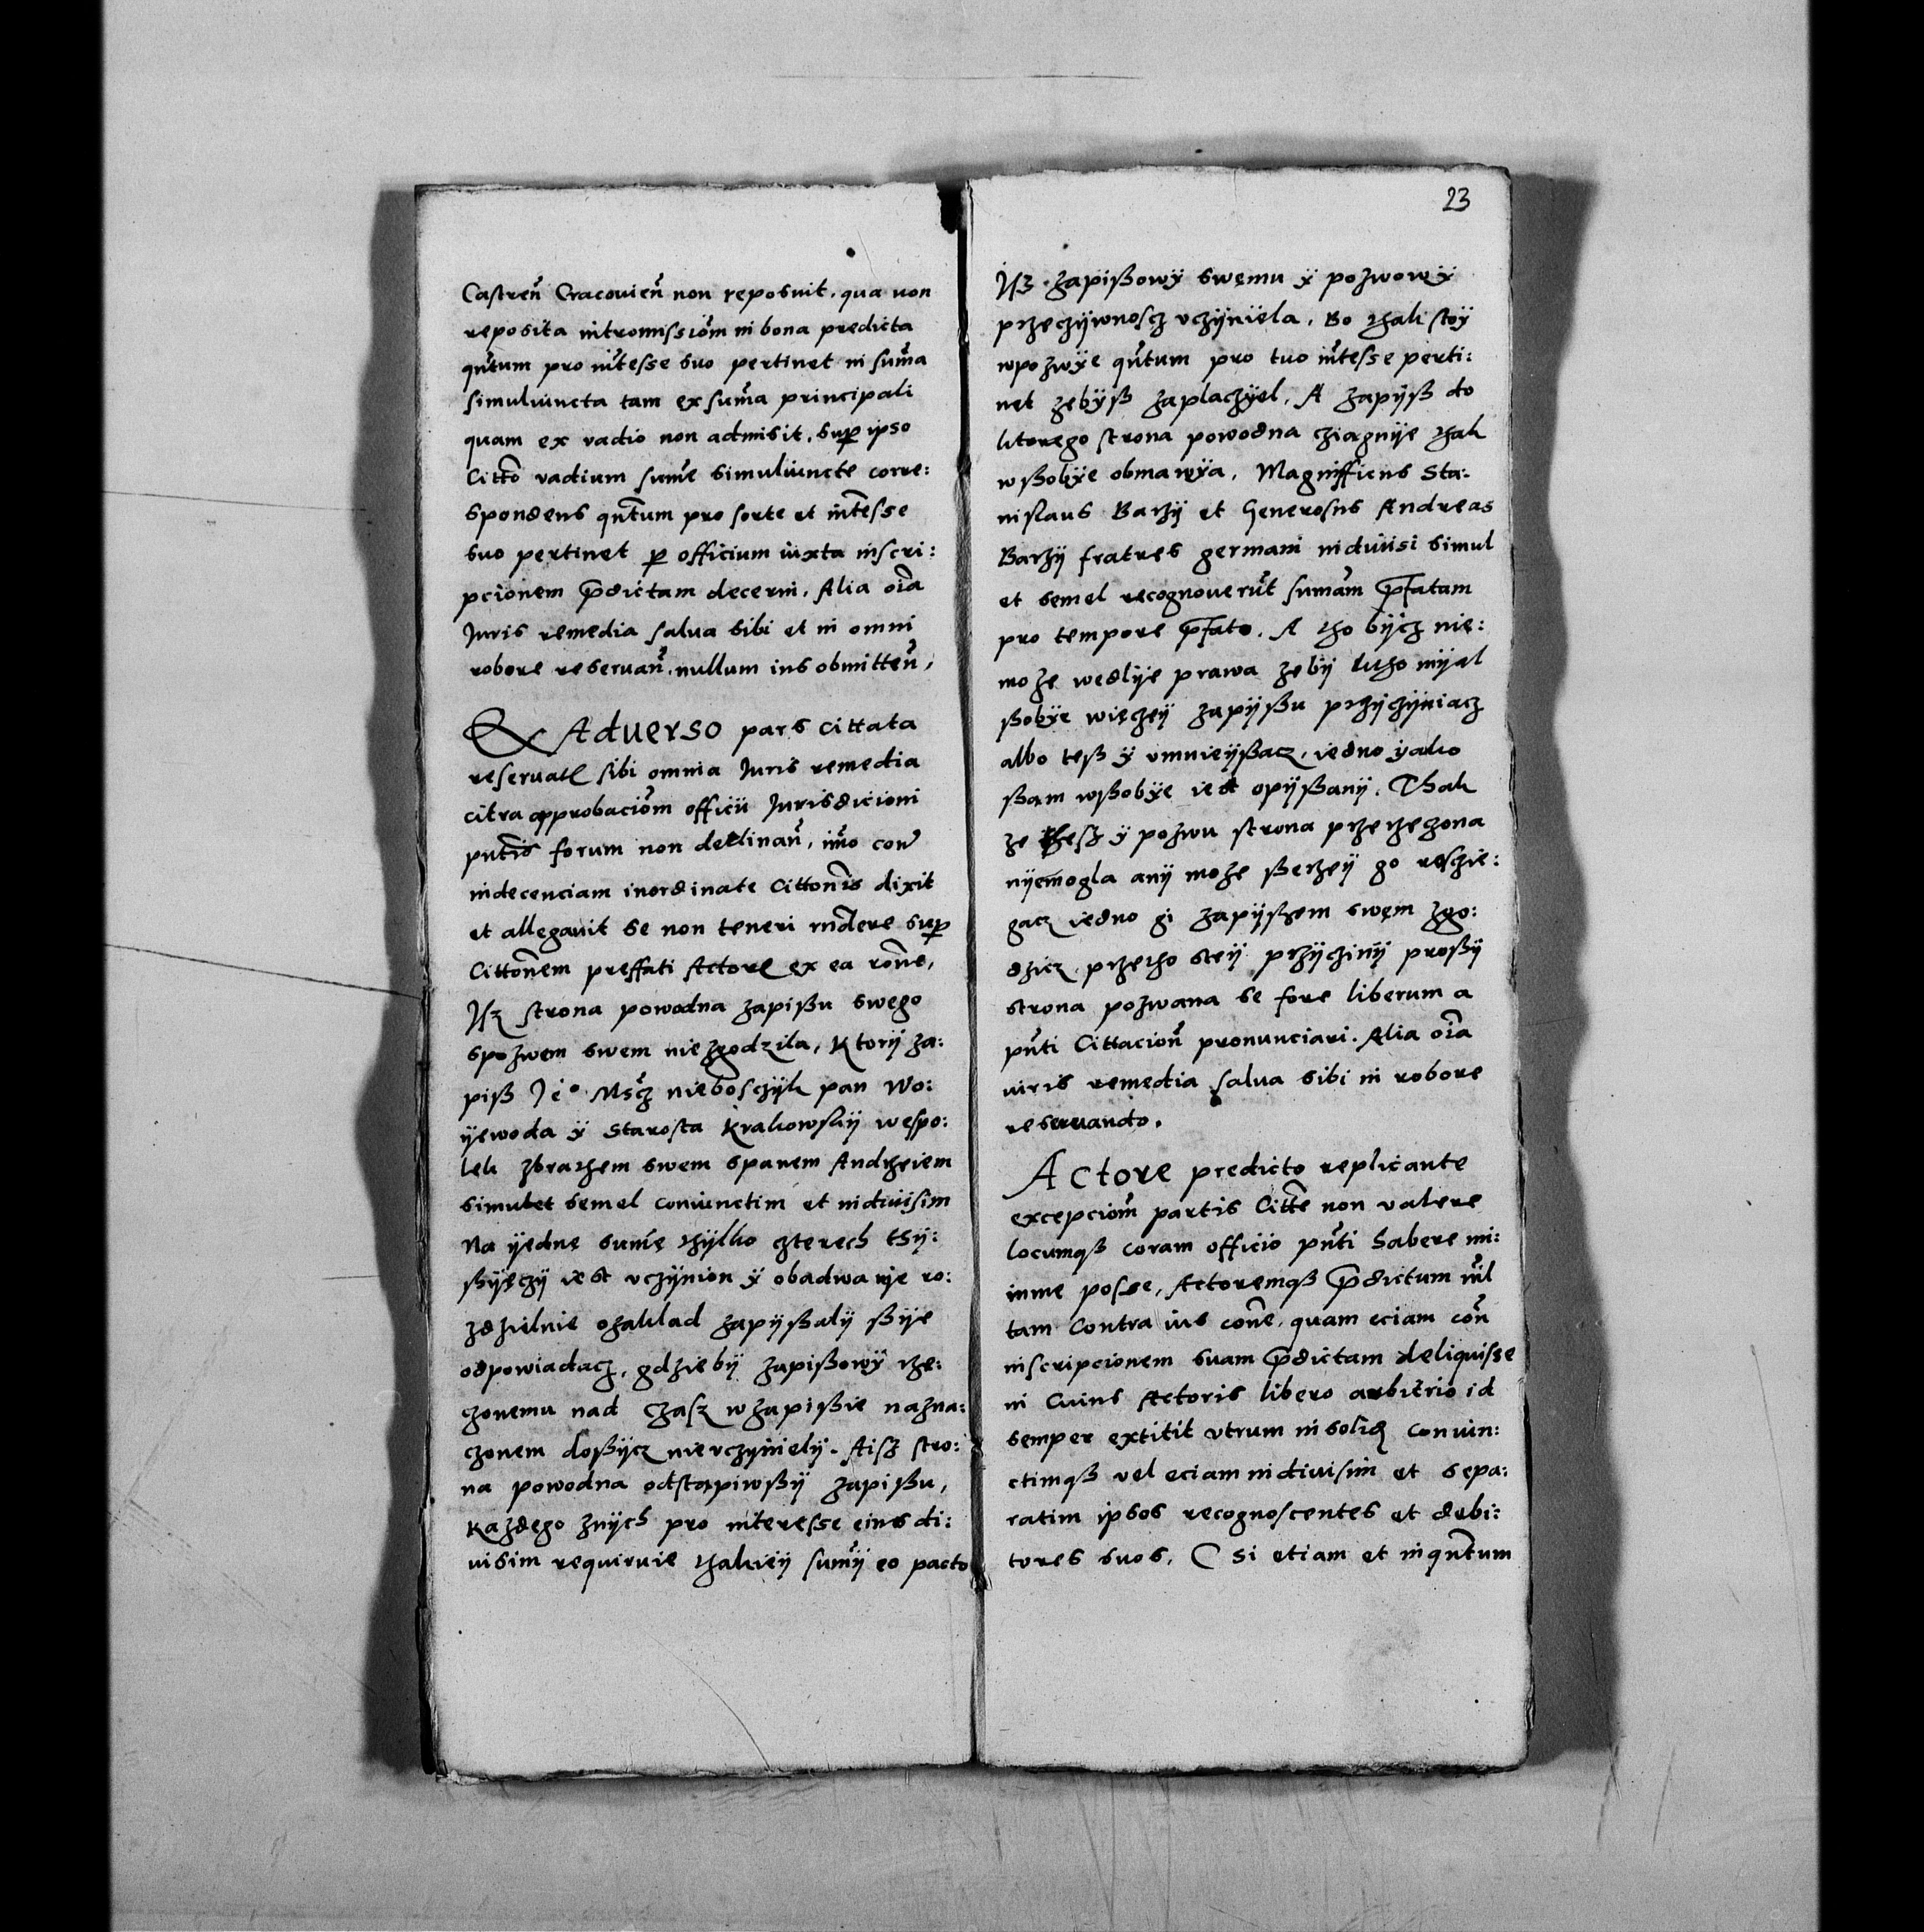 Castreñ Cracovieñ non reposuit, qua non
reposita intromissiom̃ in bona predicta
qñtum pro iñtesse suo pertinet in sum̃a
simuliuncta tam ex sum̃a principali
quam ex vadio non admisit, sup ipso
Citto vadium sum̃e simuliuncte corre:
spondens qñtum pro sorte et iñtesse
suo pertinet p officium iuxta inscri:
pcionem p̃dictam decerni. Alia oĩa
Juris remedia salva sibi et in omni
robore reservañ, nullum ius obmitteñ,
Ex Adverso pars cittata
sibi omnia Juris remedia
citra approbaciom̃ officii Jurisdicioni
pñtis forum non declinañ, im̃o
indecenciam inordinate Cittonis dixit
et allegavit se non teneri rñdere sup
Cittoñem preffati Actoris ex ea roñe,
Jsz strona powodna zapißu swego
spozwem swem niezgodzila, Ktorÿ za:
piß Je° Mscz nieboszczÿk pan Wo:
ÿewoda ÿ Starosta Krakowskÿ wespo:
lek zbrathem swem spanem Andrzeiem
simulet semel coniunctim et indivisim
Na ÿednę sum̃ę thÿlko czterech thÿ:
ßÿęczÿ iest vczÿnion ÿ obadwa nie ro:
zdzielnie ozaklad zapÿßalÿ ßÿe
odpowiadacz, gdziebÿ zapißowÿ rze:
czonemu nad czasz wzapißie nazna:
czonem doßÿcz nievczÿnielÿ. Aisz stro:
na powodna odstąpiwßÿ zapißu,
Kazdego znÿch pro interesse eius di:
visim requiruie thakieÿ sum̃ÿ eo pacto
23
Jsz zapißowÿ swemu ÿ pozwowÿ
przeczÿwnoscz vczÿniela. Bo thak stoÿ
wpozwÿe qñtum pro tuo iñtesse perti:
net zebÿß zaplaczÿel. A zapÿß do
ktorego strona powodna cziągnÿe thak
wßobÿe obmawÿa. Magnifficus Sta:
nislaus Barzÿ et Generosus Andreas
Barzÿ fratres germani indivisi simul
et semel recognoverũt sumam̃ p̃fatam
pro tempore p̃fato. A tho bÿcz nie:
moze wedlÿe prawa zebÿ ktho mÿal
ßobÿe więczeÿ zapÿßu przÿczÿniacz
albo teß ÿ vmnieÿßacz, iedno ÿako
ßam wßobÿe iest opÿßanÿ. Thak
ze thesz ÿ pozwu strona przerzeczona
nÿemogla anÿ moze ßerzeÿ go rosczie:
gacz iedno gi zapÿßem swęm zgo:
dzicz, przetho steÿ przÿczinÿ proßÿ
strona pozwana se fore liberum a
pñti Cittacioñ pronunciari. Alia oĩa
iuris remedia salva sibi in robore
reservando.
Actore predicto replicante
excepciom̃ partis Citte non valere
locumqß coram officio pñti habere mi:
inme posse, Actoremqß p̃dictum nil
tam Contra ius coñe, quam eciam coñ
inscripcionem suam p̃dictam deliquisse
in Cuius Actoris libero arbitrio id
semper extitit vtrum insolid coniun:
ctimqß vel eciam indivisim et sepa:
ratim ipsos recognoscentes et debi:
tores suos. C Si etiam et inqñtum